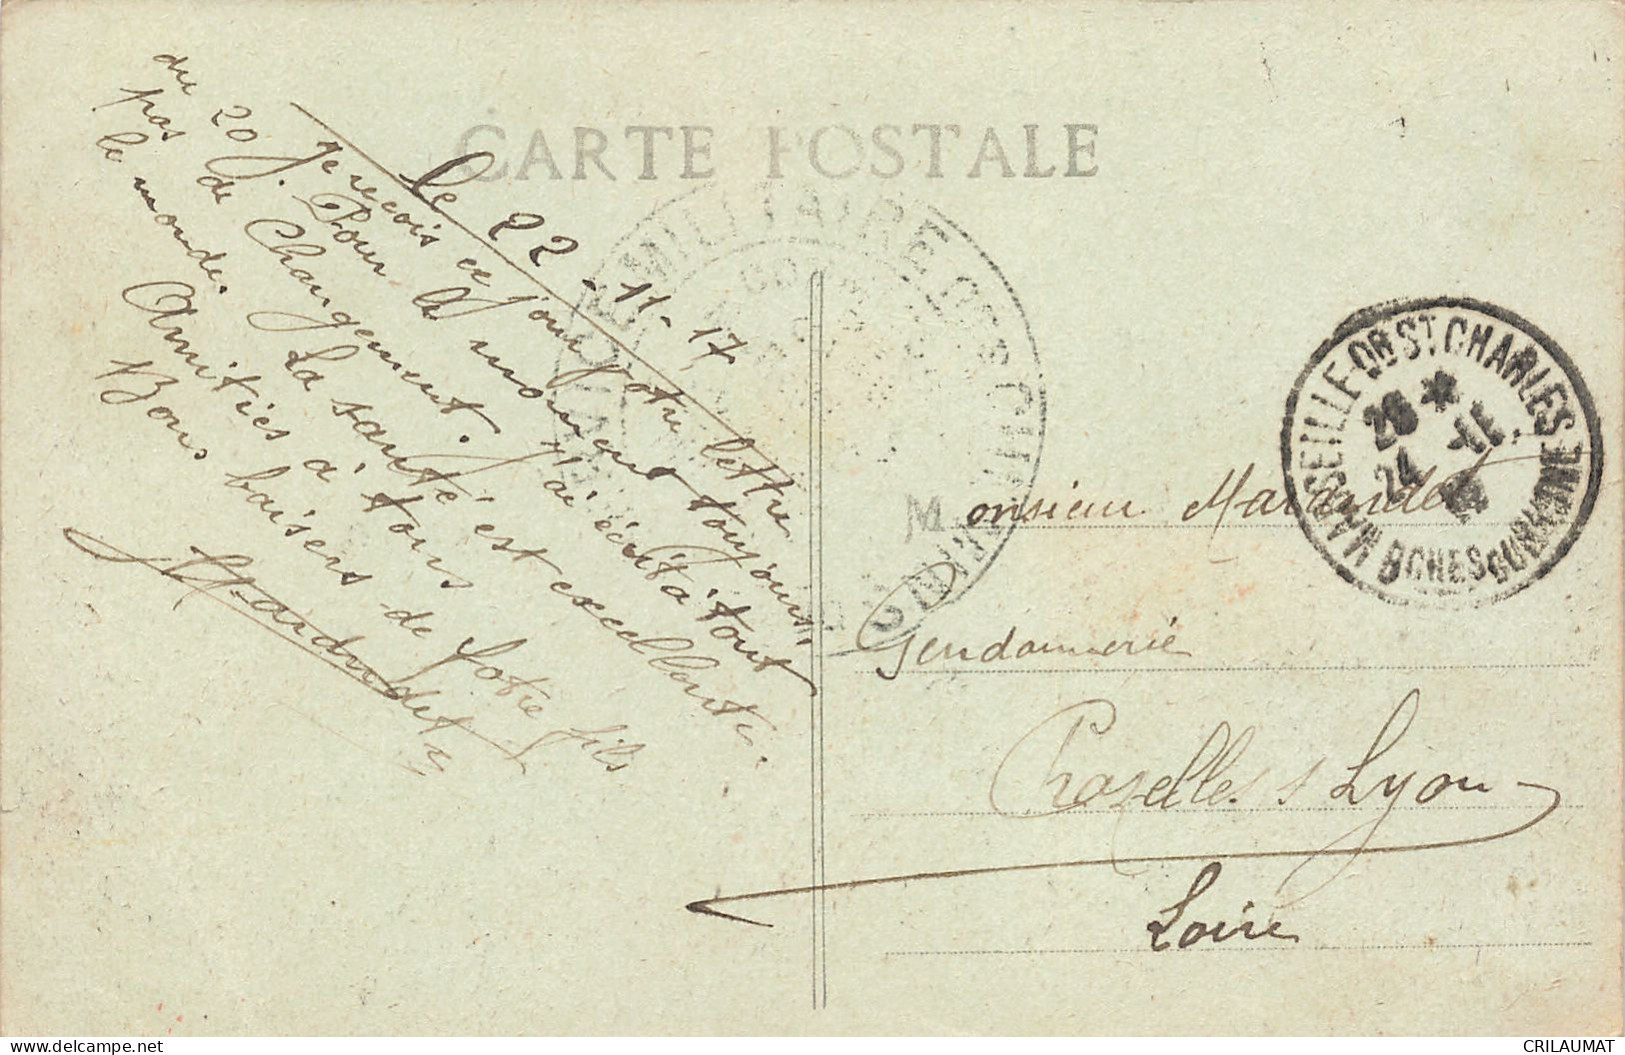 CARTE POSTALE
le 22-11-17
Je reçois ce jour votre lettre
du 20 j. Pour le moment toujours
pas de Changement. J'ai écrit à tout
le monde. La santé est excellente.
Amitiés à tous
Bons baisers de votre fils
MILITAIRE
MARSEILLE-QB ST CHARLES
24 -11
BCHES DU RHONE
Monsieur Marandet
Gendarmerie
Chazelles s Lyon
Loire
CRILAUMAT